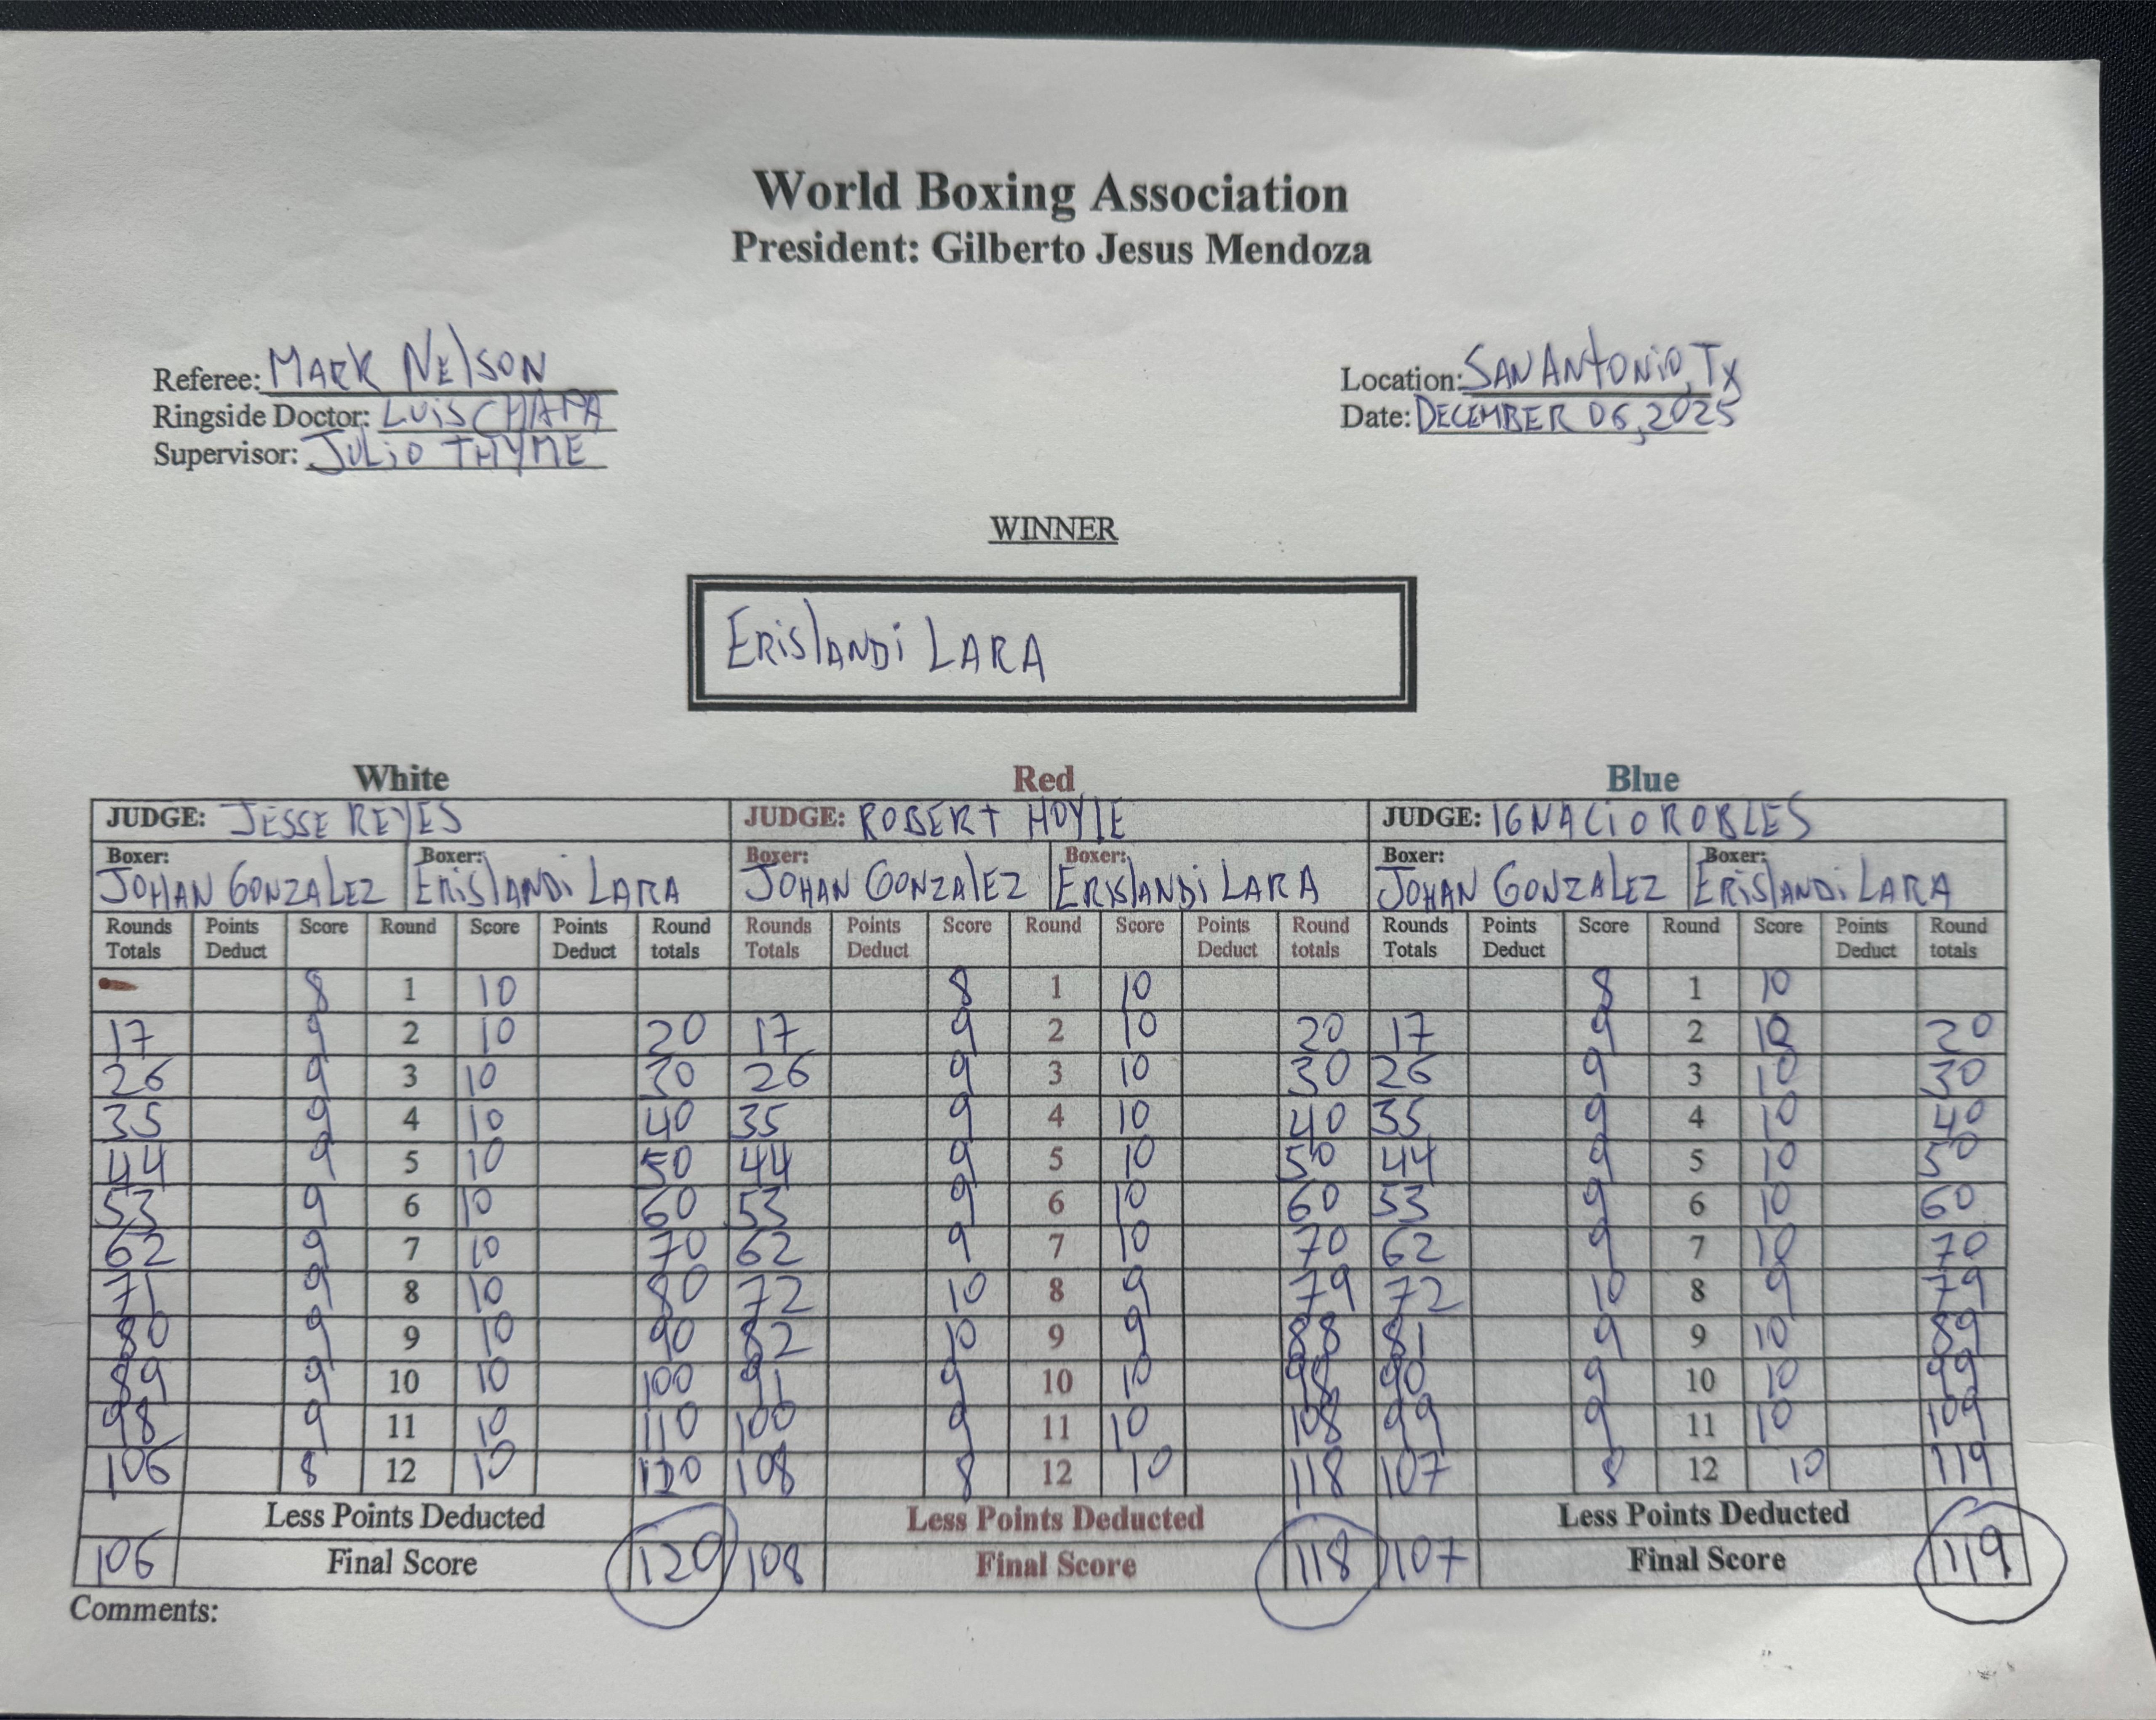 World Boxing Association
President: Gilberto Jesus Mendoza
Referee: MARK NELSON
Location: SAN ANTONIO, TX
Ringside Doctor: LUIS CHAPA
Date: DECEMBER 06, 2025
Supervisor: JULIO THYME
WINNER
ERISLANDI LARA
White Red Blue
JUDGE: JESSE REYES JUDGE: ROBERT HOYLE JUDGE: IGNACIO ROBLES
Boxer: Boxer: Boxer: Boxer: Boxer: Boxer:
JOHAN GONZALEZ ERISLANDI LARA JOHAN GONZALEZ ERISLANDI LARA JOHAN GONZALEZ ERISLANDI LARA
Rounds Points Score Round Score Points Round Rounds Points Score Round Score Points Round Rounds Points Score Round Score Points Round
Totals Deduct Deduct totals Totals Deduct Deduct totals Totals Deduct Deduct totals
- 8 1 10 8 1 10 8 1 10
17 9 2 10 20 17 9 2 10 20 17 9 2 10 20
26 9 3 10 30 26 9 3 10 30 26 9 3 10 30
35 9 4 10 40 35 9 4 10 40 35 9 4 10 40
44 9 5 10 50 44 9 5 10 50 44 9 5 10 50
53 9 6 10 60 53 9 6 10 60 53 9 6 10 60
62 9 7 10 70 62 9 7 10 70 62 9 7 10 70
71 9 8 10 80 72 10 8 9 79 72 10 8 9 79
80 9 9 10 90 82 10 9 9 88 81 9 9 10 89
89 9 10 10 100 91 9 10 10 98 90 9 10 10 99
98 9 11 10 110 100 9 11 10 108 99 9 11 10 109
106 8 12 10 120 108 8 12 10 118 107 8 12 10 119
Less Points Deducted Less Points Deducted Less Points Deducted
106 Final Score 120 108 Final Score 118 107 Final Score 119
Comments: